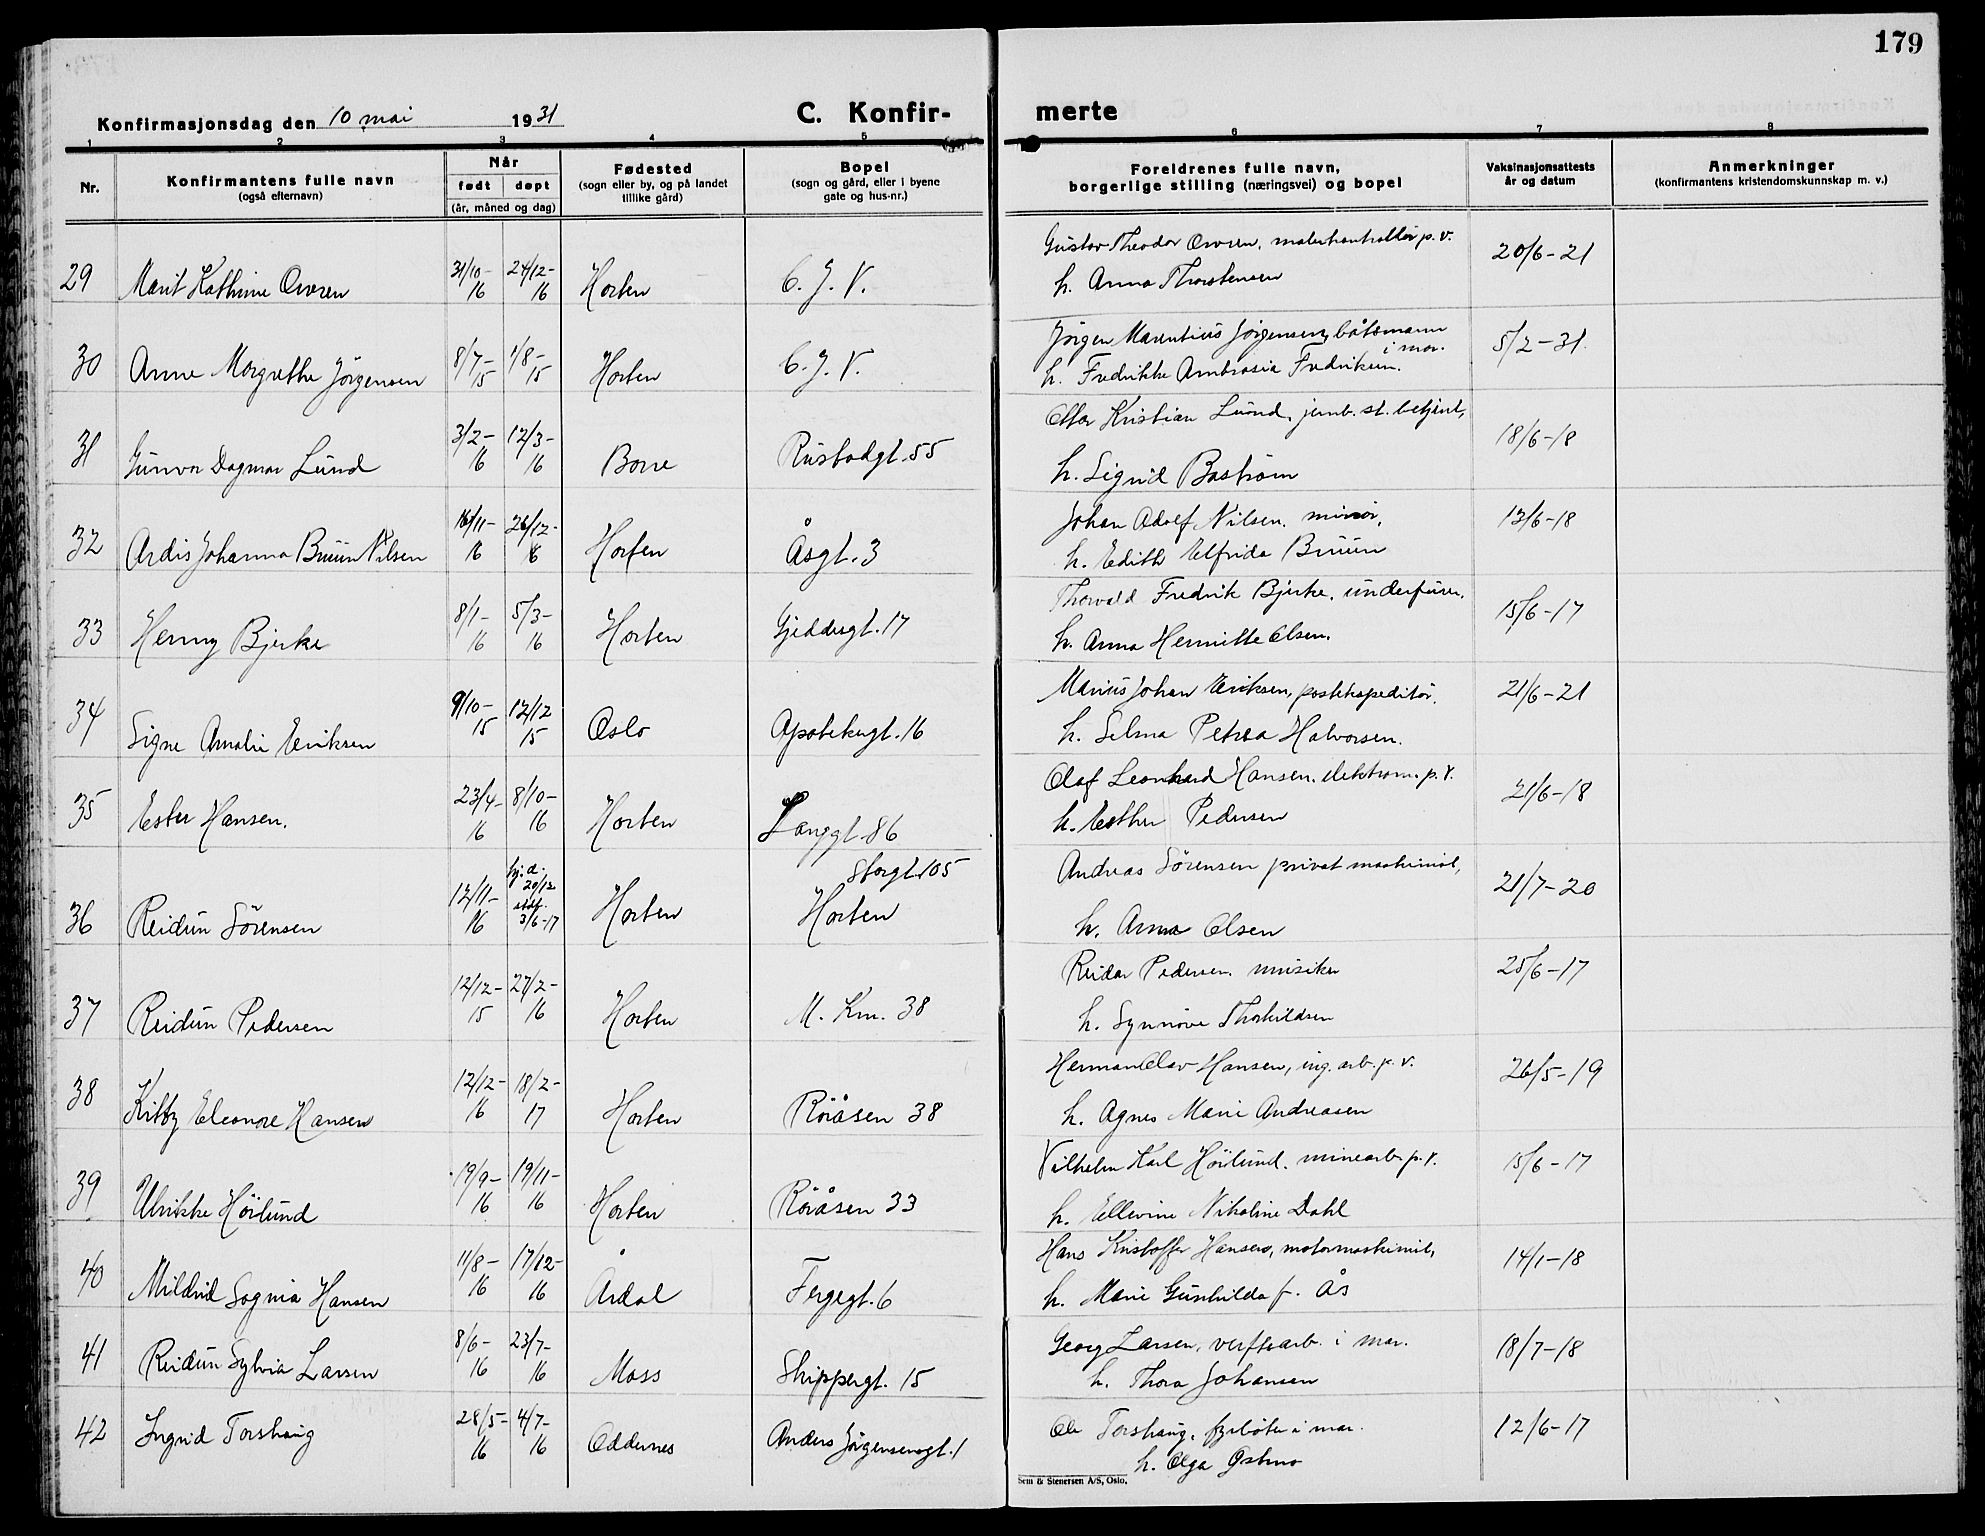 179
Konfirmasjonsdag den 10 mai 1931 C. Konfir- merte
1 2 3 4 5 6 7 8
Nr.
Konfirmantens fulle navn
(også efternavn)
Når
født døpt
(år, måned og dag)
Fødested
(sogn eller by, og på landet
tillike gård)
Bopel
(sogn og gård, eller i byene
gate og hus-nr.)
Foreldrenes fulle navn,
borgerlige stilling (næringsvei) og bopel
Vaksinasjonsattests
år og datum
Anmerkninger
(konfirmantens kristendomskunnskap m. v.)
Gustav Theodor Owren, p. v.
29 Marit Kathrine Owren 31/10-16 24/12-16 Horten C. J. V. 20/6-21
h. Anna Thorstensen
Jörgen Marentius Jörgensen, båtsmann
i mar.
30 Anne Margrethe Jörgensen 8/7-15 1/8-15 Horten C. J. V. 5/2-31.
h. Fredrikke Ambrosia Fredriksen.
Kristian Lund, jernb. st. betjent,
31 Gunvor Dagmar Lund 3/2-16 12/3-16 Borre Rustadgt. 55 18/6-18
h. Sigrid Bastrøm
Johan Adolf Nilsen, minör,
32 Ardis Johanna Bruun Nilsen 16/11-16 26/12-16 Horten Åsgt. 3 13/6-18
h. Edith Elfrida Bruun
Thorvald Fredrik Bjerke, underfurer,
33 Henny Bjerke 8/1-16 5/3-16 Horten Gjeddegt. 17 15/6-17
h. Anna Hermitte Olsen.
Marius Johan Eriksen, postekspeditör.
34 Signe Amalie Eriksen 9/10-15 12/12 15 Oslo Apotekergt. 16 21/6-21
h. Selma Petrea Halvorsen.
Olaf Leonhard Hansen, elektrom. p. v.
35 Ester Hansen. 23/4-16 8/10-16 Horten Langgt. 86 21/6-18
h. Esther Pedersen
Andreas Sörensen privat maskinist,
36 Reidun Sörensen 12/11-16 hj. d. 20/12 stdf. 3/6-17 Horten Storgt. 105 Horten 21/7-20
h. Anna Olsen
Reidar Pedersen, musiker
37 Reidun Pedersen 12/12-15 27/2-16 Horten M. Km. 38 25/6-17
h. Synnöve Thorkildsen
Herman Olav Hansen, ing. arb. p. v.
38 Kitty Eleonore Hansen 12/12-16 18/2-17 Horten Röråsen 38 26/5-19
h. Agnes Marie Andreasen
Vilhelm Karl Höilund, minearb. p. v.
39 Ulrikke Höilund 19/9-16 19/11-16 Horten Röråsen 33 15/6-17
h. Ellevine Nikoline Dahl
Hans Kristoffer Hansen, motormaskinist,
40 Mildrid Sognia Hansen 11/8-16 17/12-16 Årdal Fergegt. 6 14/1-18
h. Marie Gunhilda f. Ås
Georg Larsen, verftsarb. i mar.
41 Reidun Sylvia Larsen 8/6-16 23/7-16 Moss Skippergt. 15 18/7-18
h. Thora Johansen
Ole Torshaug, fyrböter i mar.
42 Ingrid Torshaug 28/5-16 4/7-16 Oddernes Anders Jörgensensgt. 1 12/6-17
h. Olga Østmo
Sem & Stenersen A/S, Oslo.